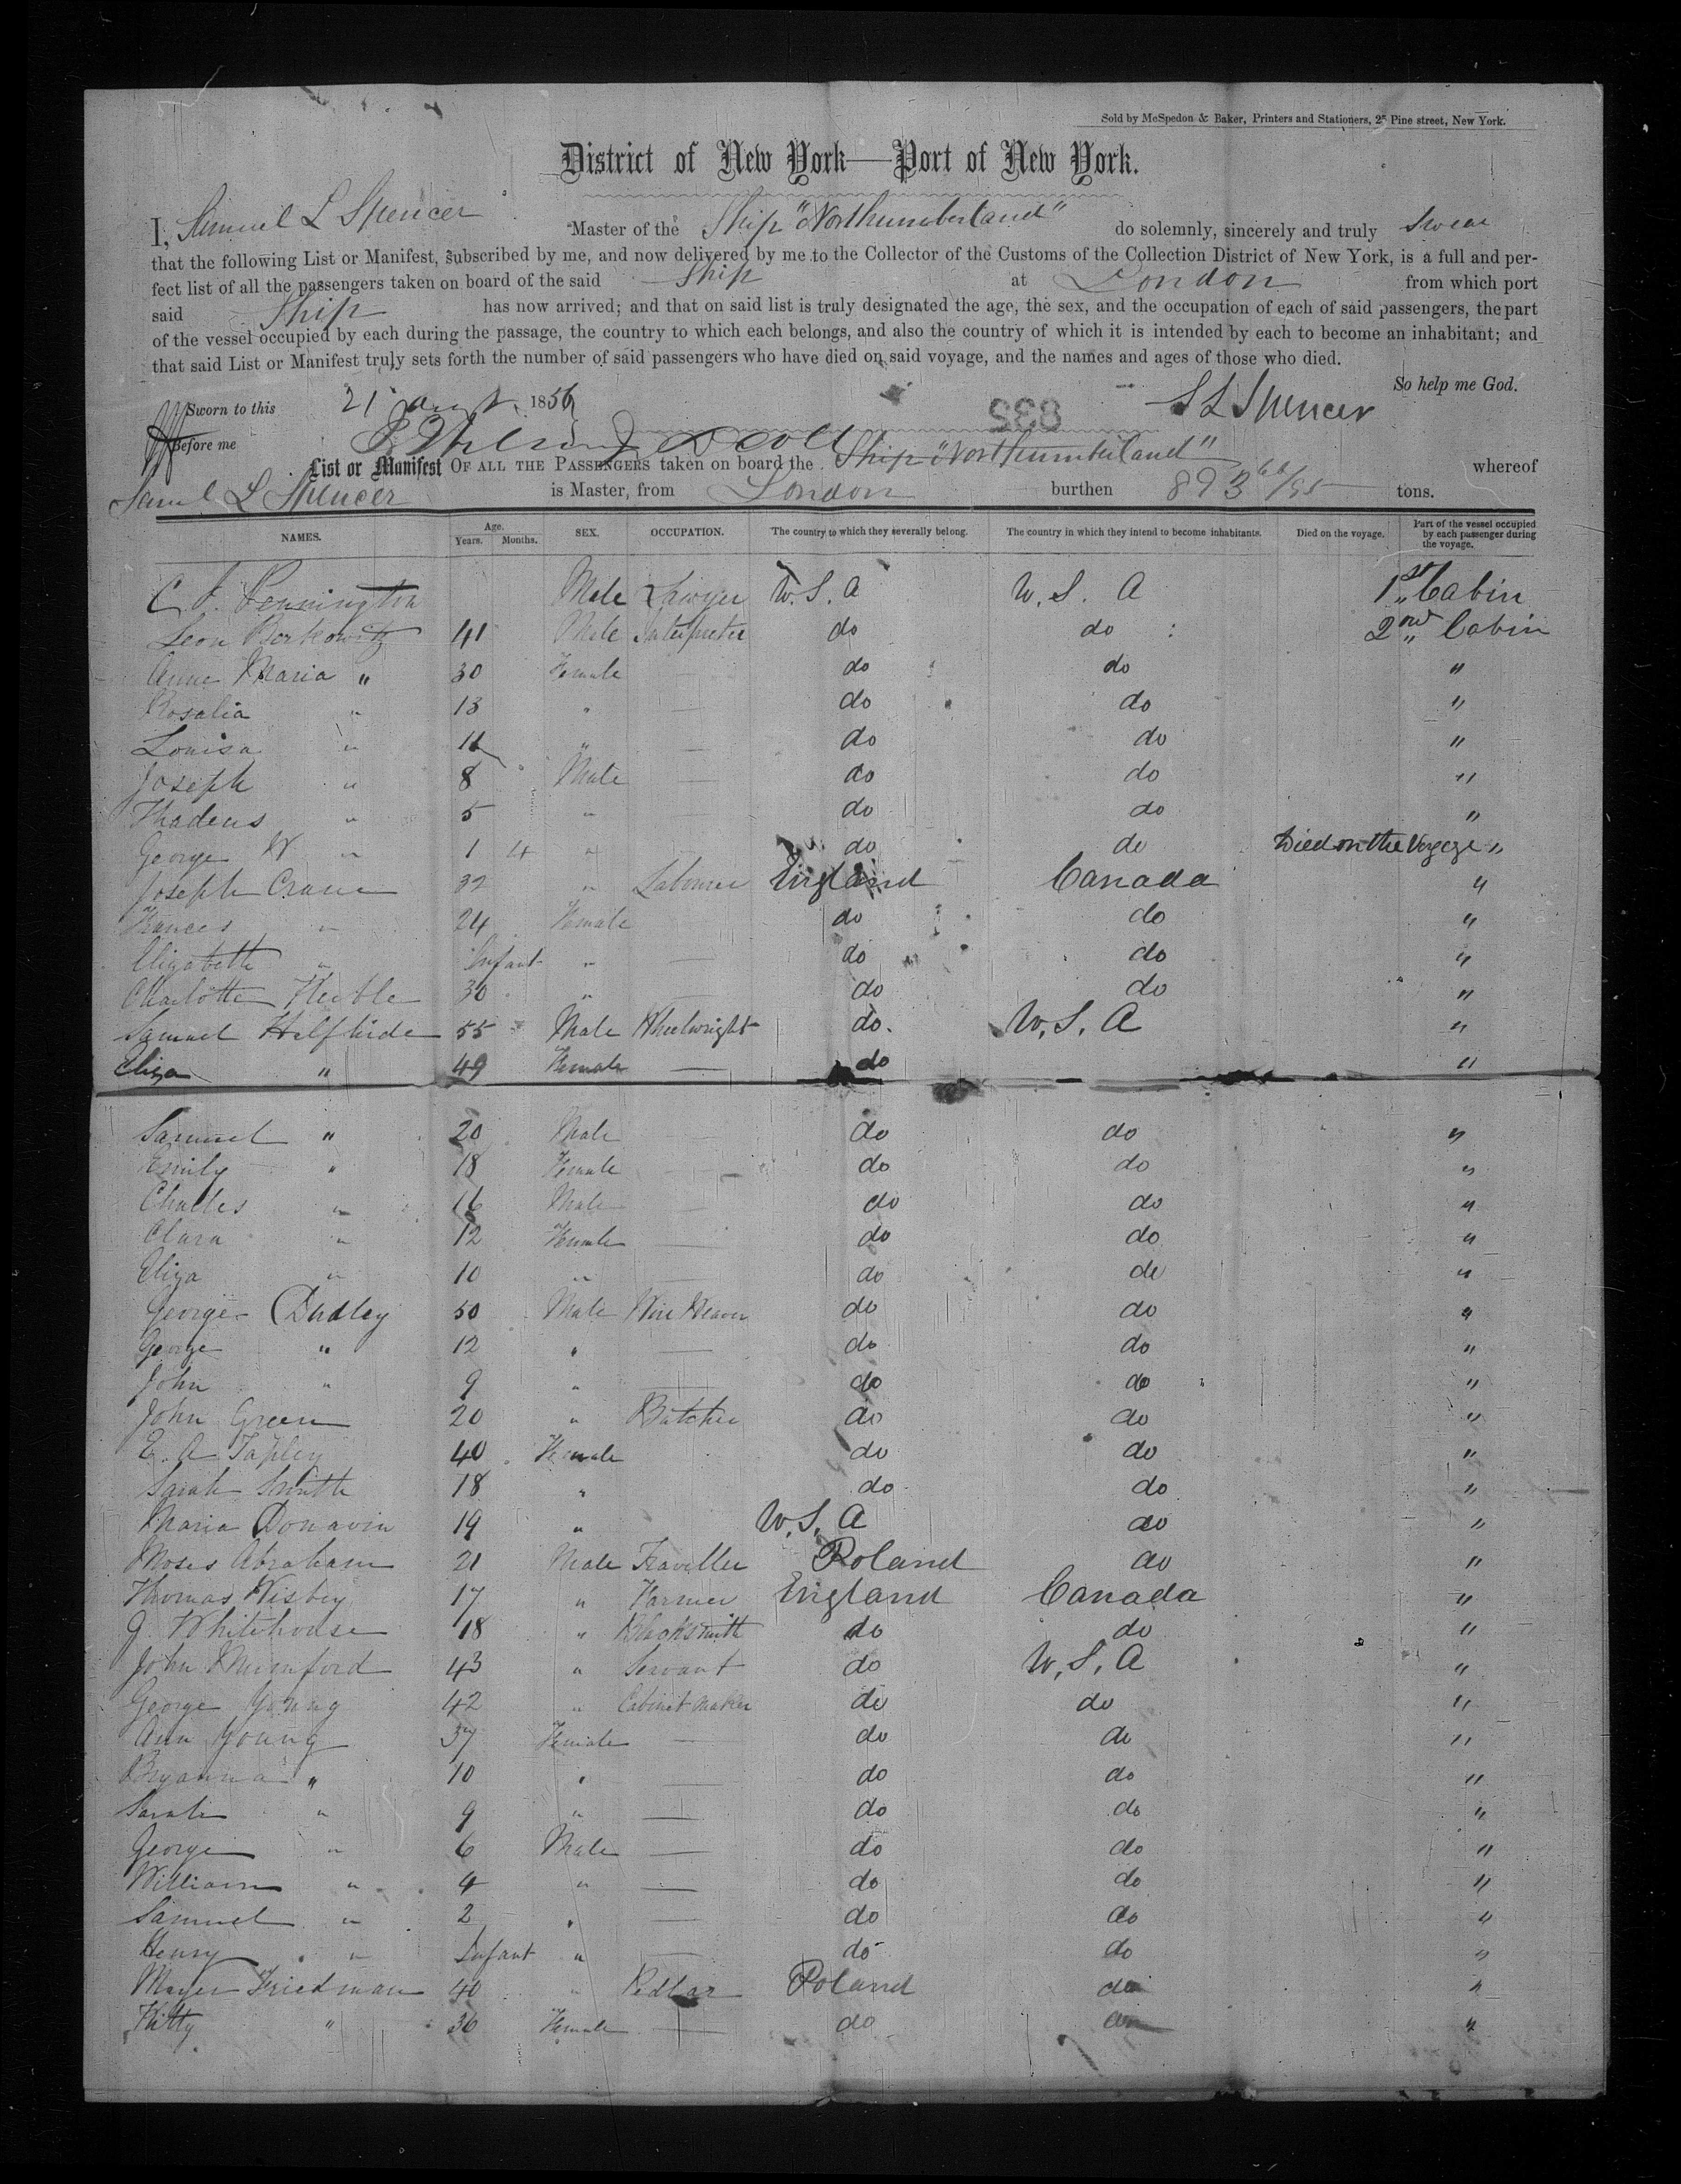 Sold by McSpedon & Baker, Printers and Stationers, 25 Pine street, New York.
District of New York—Port of New York.
I, Samuel L Spencer Master of the Ship "Northumberland" do solemnly, sincerely and truly Swear
that the following List or Manifest, subscribed by me, and now delivered by me to the Collector of the Customs of the Collection District of New York, is a full and per-
fect list of all the passengers taken on board of the said Ship at London from which port
said Ship has now arrived; and that on said list is truly designated the age, the sex, and the occupation of each of said passengers, the part
of the vessel occupied by each during the passage, the country to which each belongs, and also the country of which it is intended by each to become an inhabitant; and
that said List or Manifest truly sets forth the number of said passengers who have died on said voyage, and the names and ages of those who died.
So help me God.
Sworn to this 21 August 1856 S L Spencer
835
Before me
List or Manifest OF ALL THE PASSENGERS taken on board the Ship "Northumberland" whereof
Saml L Spencer is Master, from London burthen 893 66/95 tons.
NAMES. Age. Years. Months. SEX. OCCUPATION. The country to which they severally belong. The country in which they intend to become inhabitants. Died on the voyage. Part of the vessel occupied by each passenger during the voyage.
C. J. Pennington Male Lawyer U.S.A U.S.A 1st Cabin
Leon Berkowitz 41 Male Interpreter do do 2nd Cabin
Anne Maria " 30 Female — do do "
Rosalia " 13 " — do do "
Louisa " 11 " — do do "
Joseph " 8 Male — do do "
Thadeus " 5 " do do "
George W " 1 4 " do do Died on the Voyage "
Joseph Crane 32 " Labourer England Canada "
Frances " 24 Female do do "
Elizabeth " Infant " — do do "
Charlotte Keeble 30 " — do do "
Samuel Halfhide 55 Male Wheelwright do. U.S.A "
Eliza " 49 Female — do "
Samuel " 20 Male — do do "
Emily " 18 Female — do do "
Charles " 16 Male — do do "
Clara " 12 Female — do do "
Eliza " 10 " — do do "
George Dudley 50 Male Wire Weaver do do "
George " 12 " — do do "
John " 9 " — do do "
John Green 20 " Butcher do do "
E. A Tapley 40 Female do do "
Sarah Smith 18 " do do "
Maria Donavin 19 " U.S.A do "
Moses Abraham 21 Male Traveller Poland do "
Thomas Wisbey 17 " Farmer England Canada "
J. Whitehouse 18 " Blacksmith do do "
John Mumford 43 " Servant do U.S.A "
George Young 42 " Cabinet Maker do do "
Ann Young 37 Female — do do "
Bryanna " 10 " — do do "
Sarah " 9 " — do do "
George " 6 Male — do do "
William " 4 " — do do "
Samuel " 2 " — do do "
Henry " Infant " — do do "
Mayer Friedman 40 " Pedlar Poland do "
Kitty " 36 Female — do do "